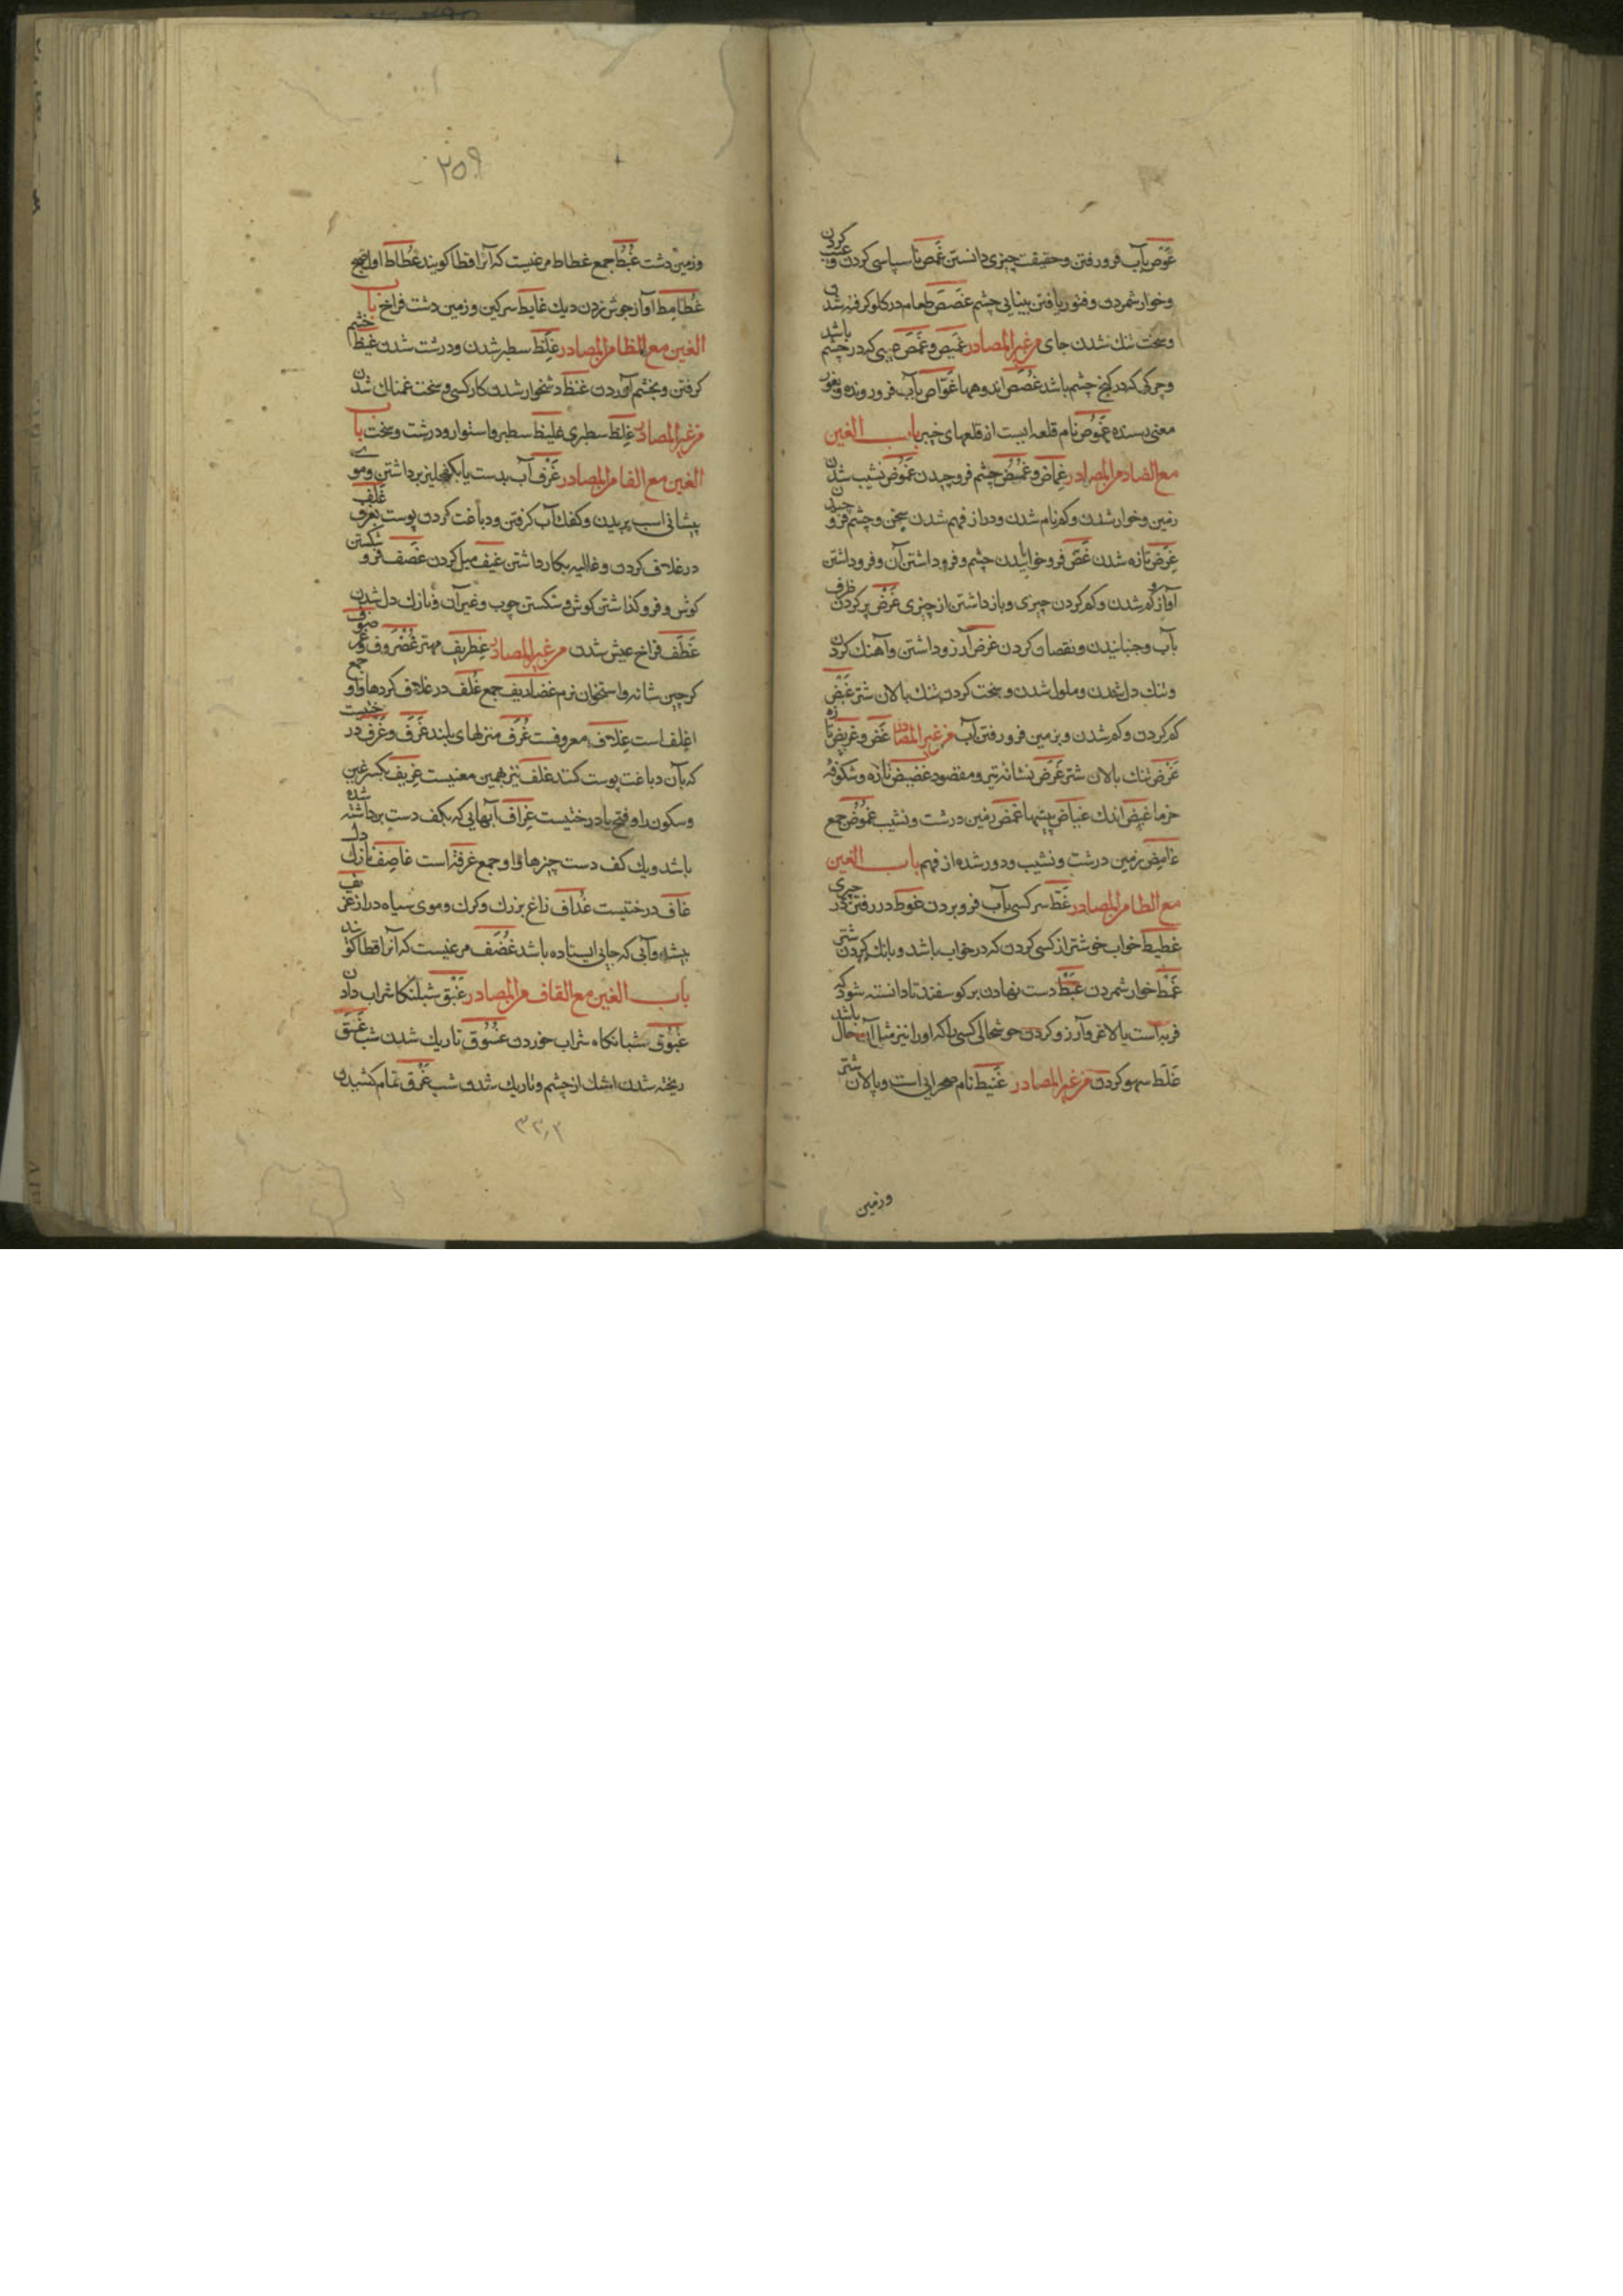 غوص بآب فرو رفتن و حقیقت چیزی دانستن غمص ناسپاسی کردن و عیب کردن
و خوار شمردن و فتور یافتن بینایی چشم غصص طعام در کلو کرفته شدن
و سخت تنك شدن جای من غیر المصادر غمیص و غمص چیبی که در چشم باشد
و چرکی که در کنج چشم باشد غصص اندوهها غواص بآب فرو رونده و بغور
معنی رسنده غموص نام قلعه ایست از قلعهای خیبر باب الغین
مع الضاد من المصادر غماض و غمض چشم فرو چیدن غموض نشیب شدن
زمین و خوار شدن و کم نام شدن و دور از فهم شدن سخن و چشم فرو
غرض تازه شدن غض فرو خوابانیدن چشم و فرو داشتن آن و فرو داشتن
آواز و کم شدن و کم کردن چیزی و باز داشتن از چیزی غرض پر کردن ظرف
بآب و جنبانیدن و نقصان کردن غرض آرزو داشتن و آهنك کردن
و تنك دل شدن و ملول شدن و سخت کردن تنك پالان شتر غیض
کم کردن و کم شدن و بزمین فرو رفتن آب من غیر المصادر غض و غریض تازه
غرض تنك پالان شتر غرض نشانه تیر و مقصود غضیض تازه و شکوفه
خرما غیض اندك غیاض بیشها غمض زمین درشت و نشیب غموض جمع
غامض زمین درشت و نشیب و دور شده از فهم باب الغین
مع الطا من المصادر غط سر کسی بآب فرو بردن غوط در رفتن در چیزی
غطیط خواب خوشتر از کسی کردن که در خواب باشد و بانك کردن شتر
غمط خوار شمردن غبط دست نهادن بر کوسفند تا دانسته شود که
فربه است یا لاغر و آرزو کردن خوشحالی کسی را که او را نیز مثل آن حال باشد
غلط سهو کردن من غیر المصادر غبیط نام صحرایی است و پالان شتر
و زمین
۲۵۹
و زمین دشت غبط جمع غطاط مرغیست که آنرا قطا کویند غطاط اول صبح
غطامط آواز جوش زدن دیك غایط سرکین و زمین دشت فراخ باب
الغین مع الظا من المصادر غلظ سطبر شدن و درشت شدن غیظ خشم
کرفتن و بخشم آوردن غنظ دشخوار شدن کار کسی و سخت غمناك شدن
من غیر المصادر غلظ سطبری غلیظ سطبر و استوار و درشت و سخت باب
الغین مع الفا من المصادر غرف آب بدست یا بکفجلیز برداشتن و موی
پیشانی اسب بریدن و کفك آب کرفتن و دباغت کردن پوست بغرف غلف
در غلاف کردن و غالیه بکار داشتن غیف میل کردن غضف فرو شکستن
کوش و فرو کذاشتن کوش و شکستن چوب و غیر آن و نازك دل شدن
غطف فراخ عیش شدن من غیر المصادر غطریف مهتر غضروف و غرضوف
کرچین شانه و استخوان نرم غضاریف جمع غلف در غلاف کردها و او جمع
اغلف است غلاف معروفست غرف منزلهای بلند غرف و غرف درختیست
که بآن دباغت پوست کنند غلف نیز همین معنیست غریف بکسر غین
و سکون را و فتح یا درختیست غراف آبهایی که بکف دست برداشته شده
باشد و یك کف دست چیزها و او جمع غرفة است غاصف نازك دل
غاف درختیست غداف زاغ بزرك و کرك و موی سیاه دراز غریف
بیشه و آبی که جایی ایستاده باشد غضف مرغیست که آنرا قطا کویند
باب الغین مع القاف من المصادر غبق شبانکاه شراب دادن
غبوق شبانکاه شراب خوردن غسوق تاریك شدن شب غسق
ریخته شدن اشك از چشم و تاریك شدن شب غرق تمام کشیدن